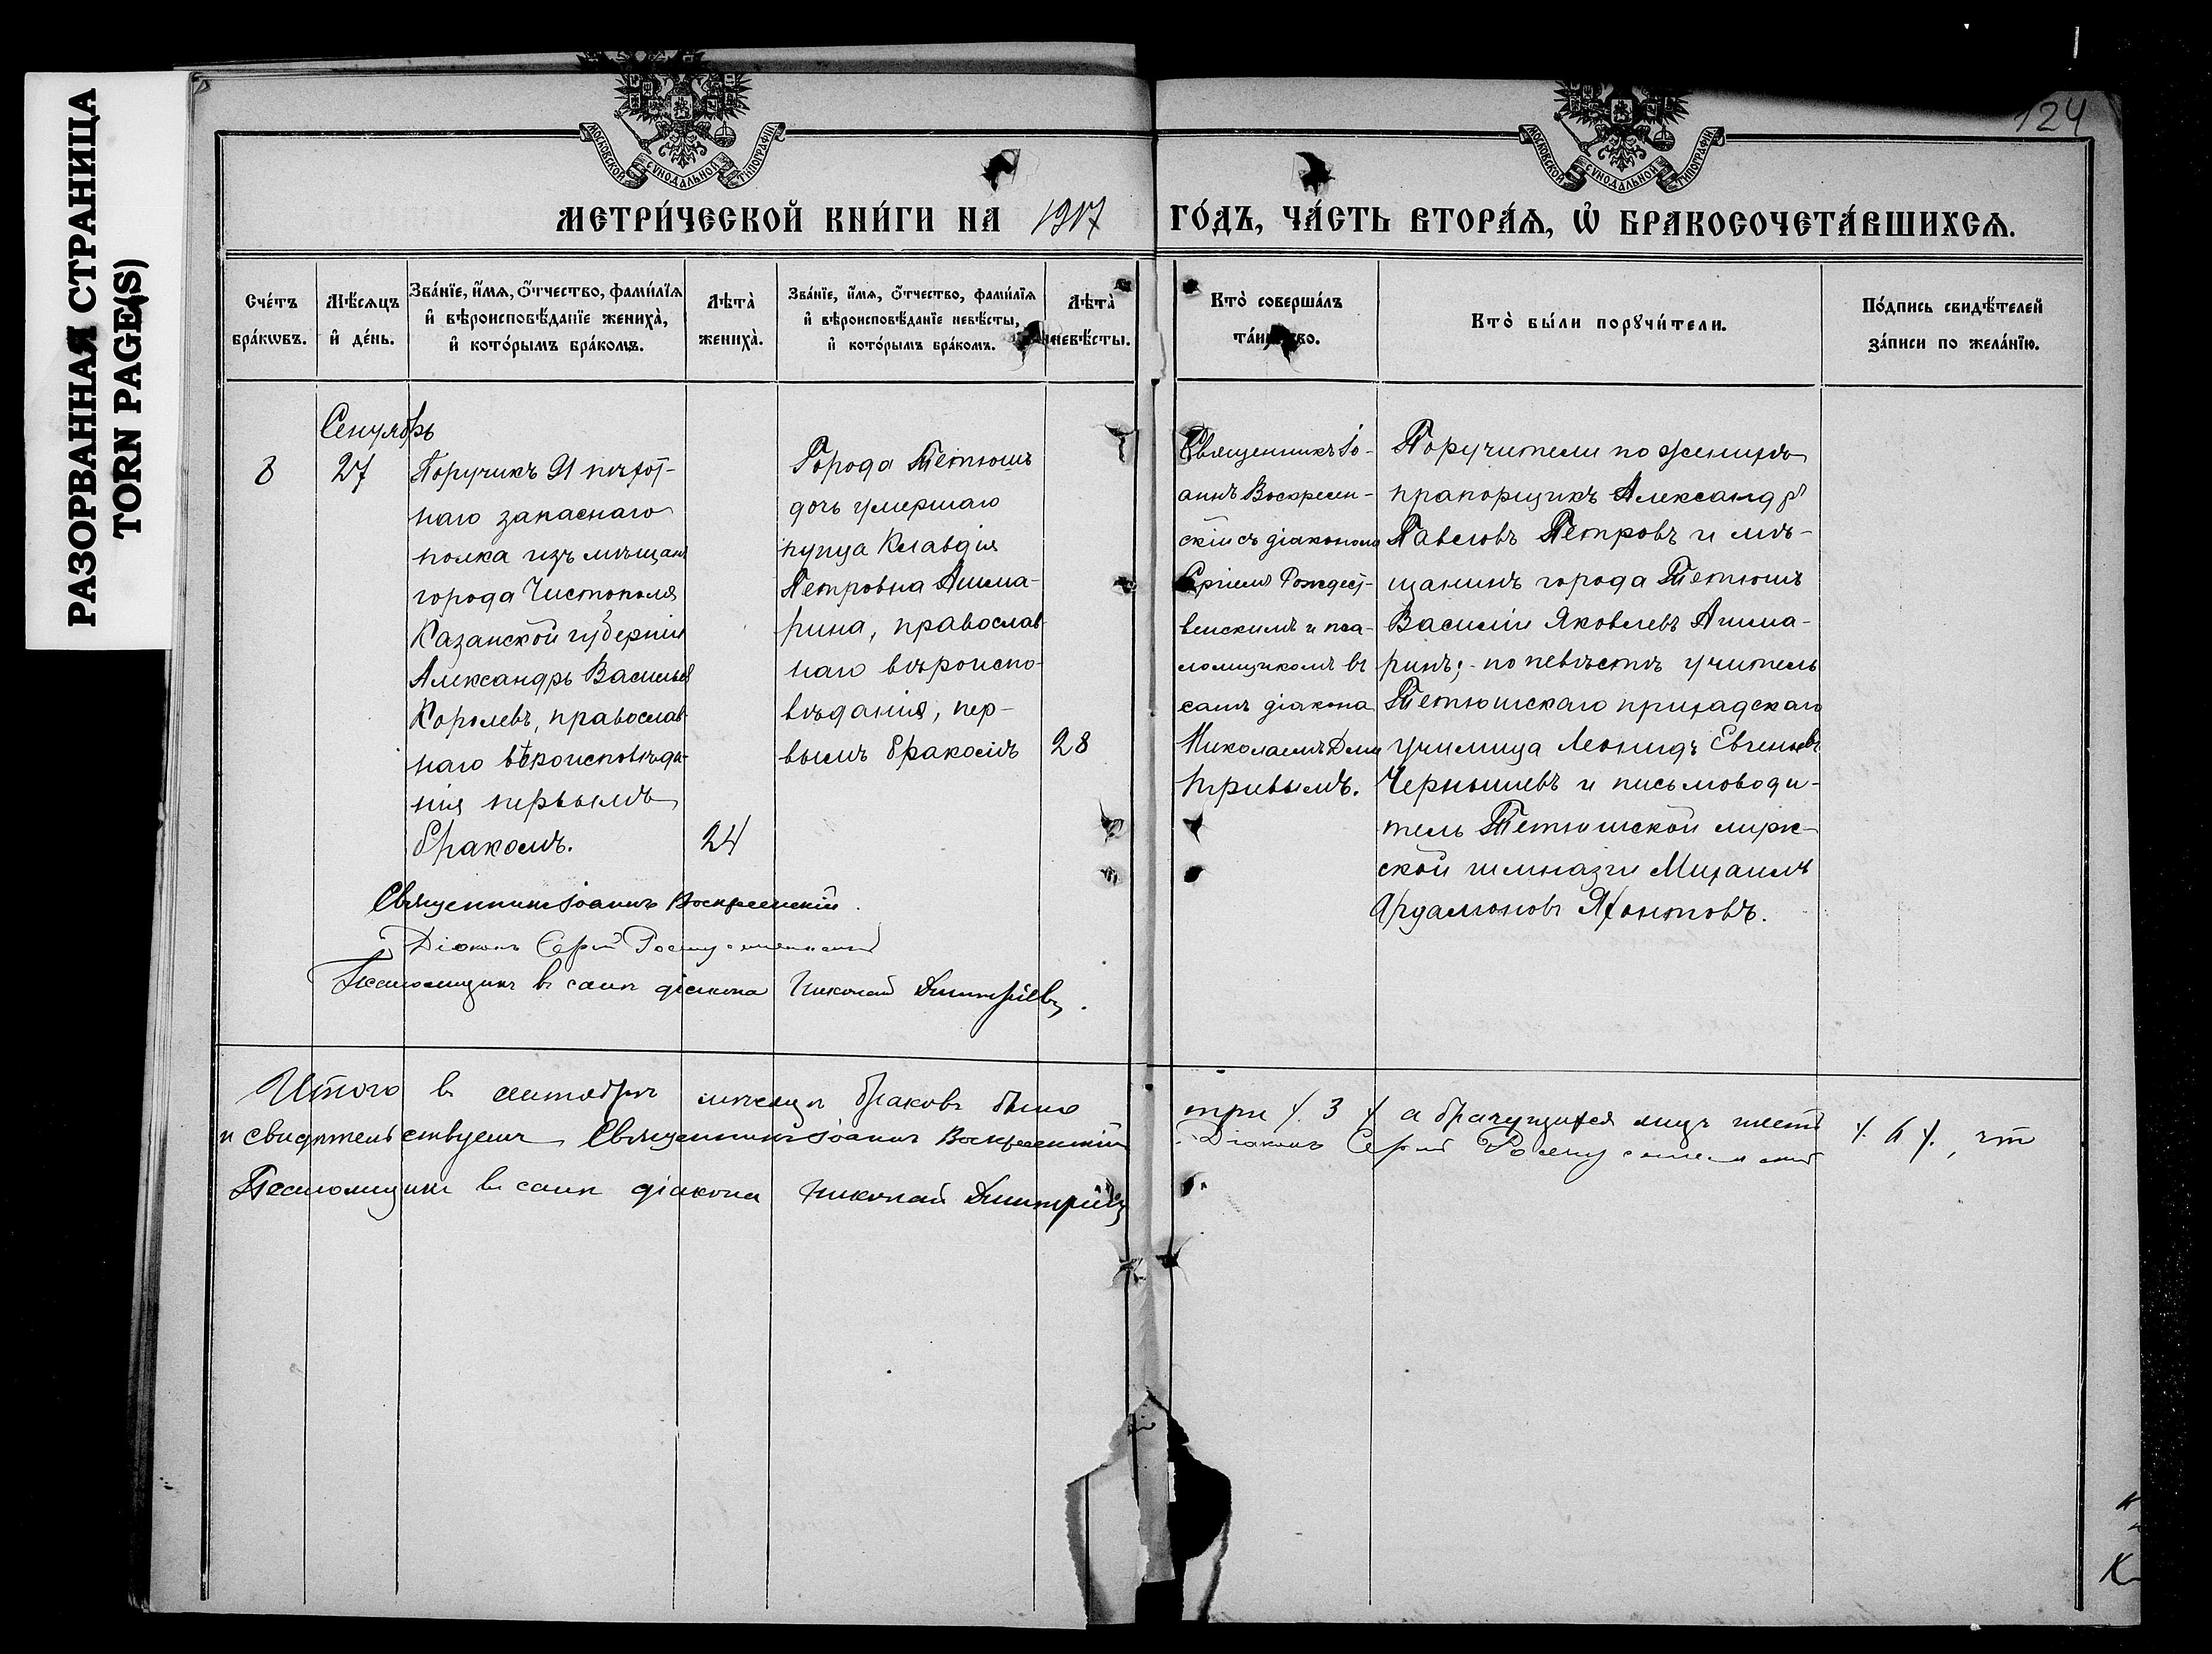 РАЗОРВАННАЯ СТРАНИЦА
TORN PAGE(S)
124
МОСКОВСКОЙ СУНОДАЛЬНОЙ ТИПОГРАФІИ
МОСКОВСКОЙ СУНОДАЛЬНОЙ ТИПОГРАФІИ
МЕТРИ́ЧЕСКОЙ КНИ́ГИ НА 1917 ГО́ДЪ, ЧА́СТЬ ВТОРА́Ѧ, Ѡ҆ БРАКОСОЧЕТА́ВШИХСѦ.
Сче́тъ
бра́кѡвъ.
Мѣ́сѧцъ
и҆ де́нь.
Зва́нїе, и҆́мѧ, ѻ҆́тчество, фами́лїѧ
и҆ вѣроисповѣ́данїе жениха̀,
и҆ кото́рымъ бра́комъ.
Лѣта̀
жениха̀.
Зва́нїе, и҆́мѧ, ѻ҆́тчество, фами́лїѧ
и҆ вѣроисповѣ́данїе невѣ́сты,
и҆ кото́рымъ бра́комъ.
Лѣта̀
невѣ́сты.
Кто̀ соверша́лъ
та́инство.
Кто̀ бы́ли порꙋчи́тели.
По́дпись свидѣ́телей
за́писи по жела́нїю.
Сентябрь
8
27
Поручикъ 91 пѣхот-
наго запаснаго
полка изъ мѣщанъ
города Чистополя
Казанской губерніи
Александръ Васильевъ
Королевъ, православ-
наго вѣроисповѣда-
нія первымъ
бракомъ.
24
Города Тетюшъ
дочь умершаго
купца Клавдія
Петровна Ашма-
рина, православ-
наго вѣроиспо-
вѣданія, пер-
вымъ бракомъ
28
Священникъ Іо-
аннъ Воскресен-
скій съ діакономъ
Сергіемъ Рождест-
венскимъ и пса-
ломщикомъ въ
санѣ діакона
Николаемъ Дми
тріевымъ.
Поручители по женихѣ
прапорщикъ Александръ
Павловъ Петровъ и мѣ-
щанинъ города Тетюшъ
Василій Яковлевъ Ашма-
ринъ; по невѣстѣ учитель
Тетюшскаго приходскаго
училища Леонидъ Евгеньевъ
Чернышевъ и письмоводи-
тель Тетюшской мирж-
ской гимназіи Михаилъ
Ардаліоновъ Афонтовъ.
Священникъ Іоаннъ Воскресенскій.
Діаконъ Сергій Рождественскій
Псаломщикъ въ санѣ діакона Николай Дмитріевъ.
Итого въ сентябрѣ мѣсяцѣ браковъ было три /. 3 ./ а брачущихся лицъ шесть /. 6 ./, что
и свидѣтельствуемъ Священникъ Іоаннъ Воскресенскій Діаконъ Сергій Рождественскій
Псаломщикъ въ санѣ діакона Николай Дмитріевъ